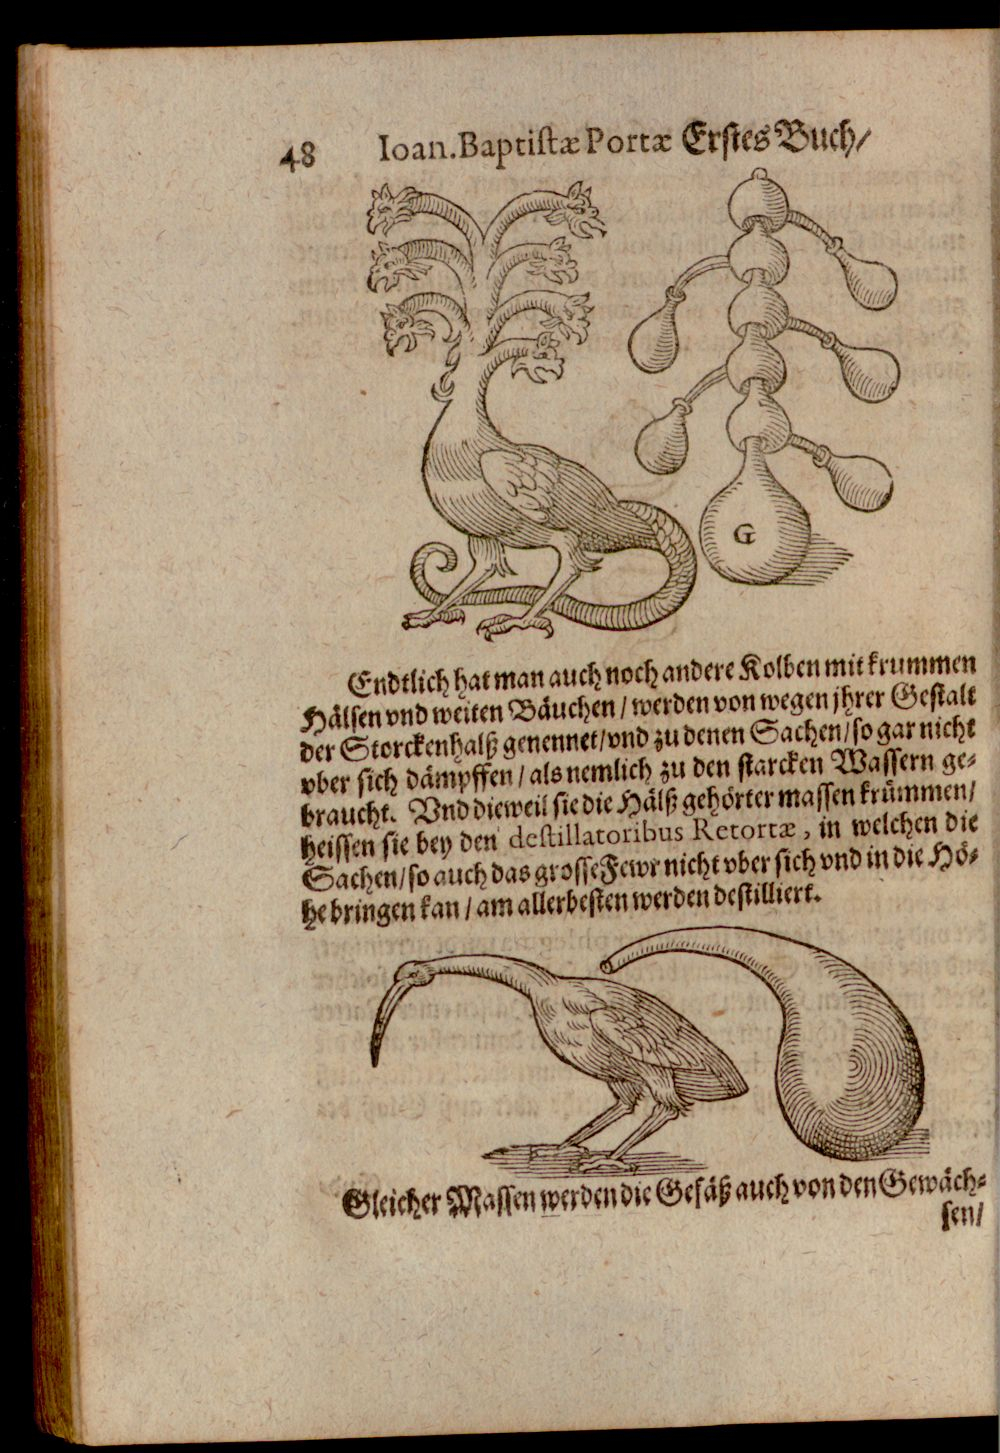 48 Ioan. Baptistæ Portæ Erstes Buch/
G
Endtlich hat man auch noch andere Kolben mit krummen
Hälsen vnd weiten Bäuchen / werden von wegen jhrer Gestalt
der Storckenhalß genennet/vnd zu denen Sachen/so gar nicht
vber sich dämpffen / als nemlich zu den starcken Wassern ge-
braucht. Vnd dieweil sie die Hälß gehörter massen krümmen/
heissen sie bey den destillatoribus Retortæ, in welchen die
Sachen/so auch das grosse Fewr nicht vber sich vnd in die Hö-
he bringen kan / am allerbesten werden destilliert.
Gleicher Massen werden die Gefäß auch von den Gewäch-
sen/